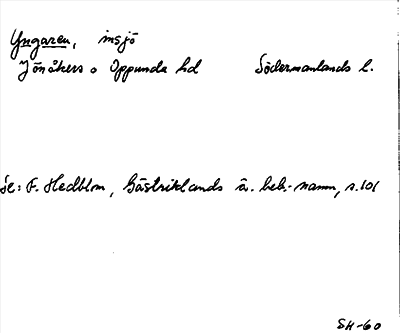 Yngaren, insjö
Jönåkers o Oppunda hd Södermanlands l.
Se: F. Hedblom, Gästriklands ä. beb.-namn, s. 101
SH-60